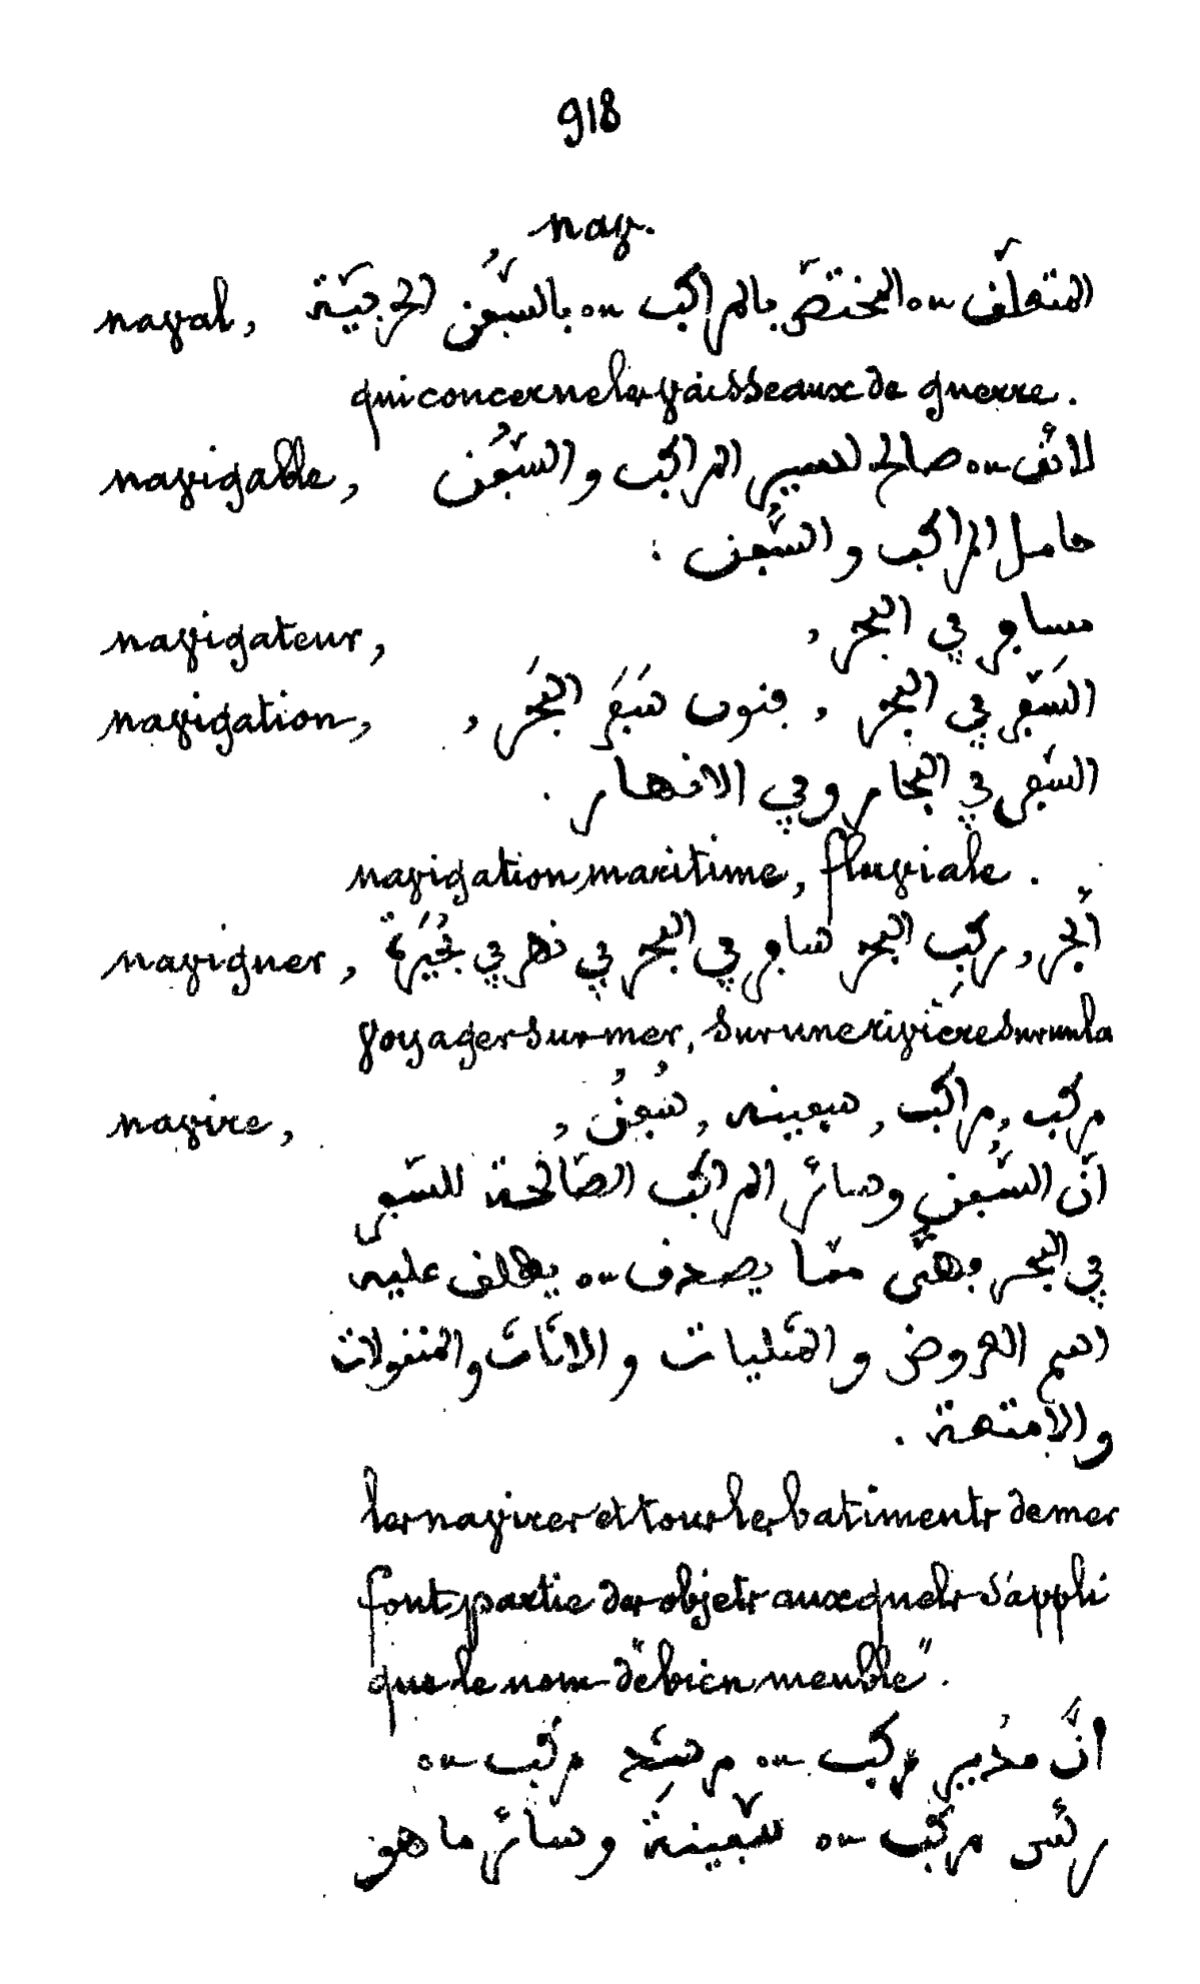 918
nav.
naval, المتعلّق ou المختصّ بالمراكب ou بالسّفُن الحربيّة
qui concerne les vaisseaux de guerre.
navigable, لائق ou صالح لسير المراكب والسّفُن
حامل المراكب والسُّفن :
navigateur, مسافر في البحر ,
navigation, السَّفَر في البحر , فنون سَفَر البَحَر ,
السّفر في البحار وفي الانهار .
navigation maritime, fluviale .
naviguer, أبحر , ركب البحر سافر في البحر في نهر في بُحَيْرَة
voyager sur mer, sur une rivière sur un la
navire, مركب , مراكب , سفينه , سُفُنُ ,
انّ السُّفن وسائر المراكب الصّالحة للسّفر
في البحر فهىّ ممّا يصدق ou يطلق عليه
اسم العروض والمثليات والاثاث والمنقولات
والامتعة .
les navires et tous les batiments de mer
font partie des objets auxquels s'appli
que le nom de "bien meuble".
انّ مدُبير مركب ou مرشد مركب ou
رئس مركب ou سّفينَة وسائر ما هو